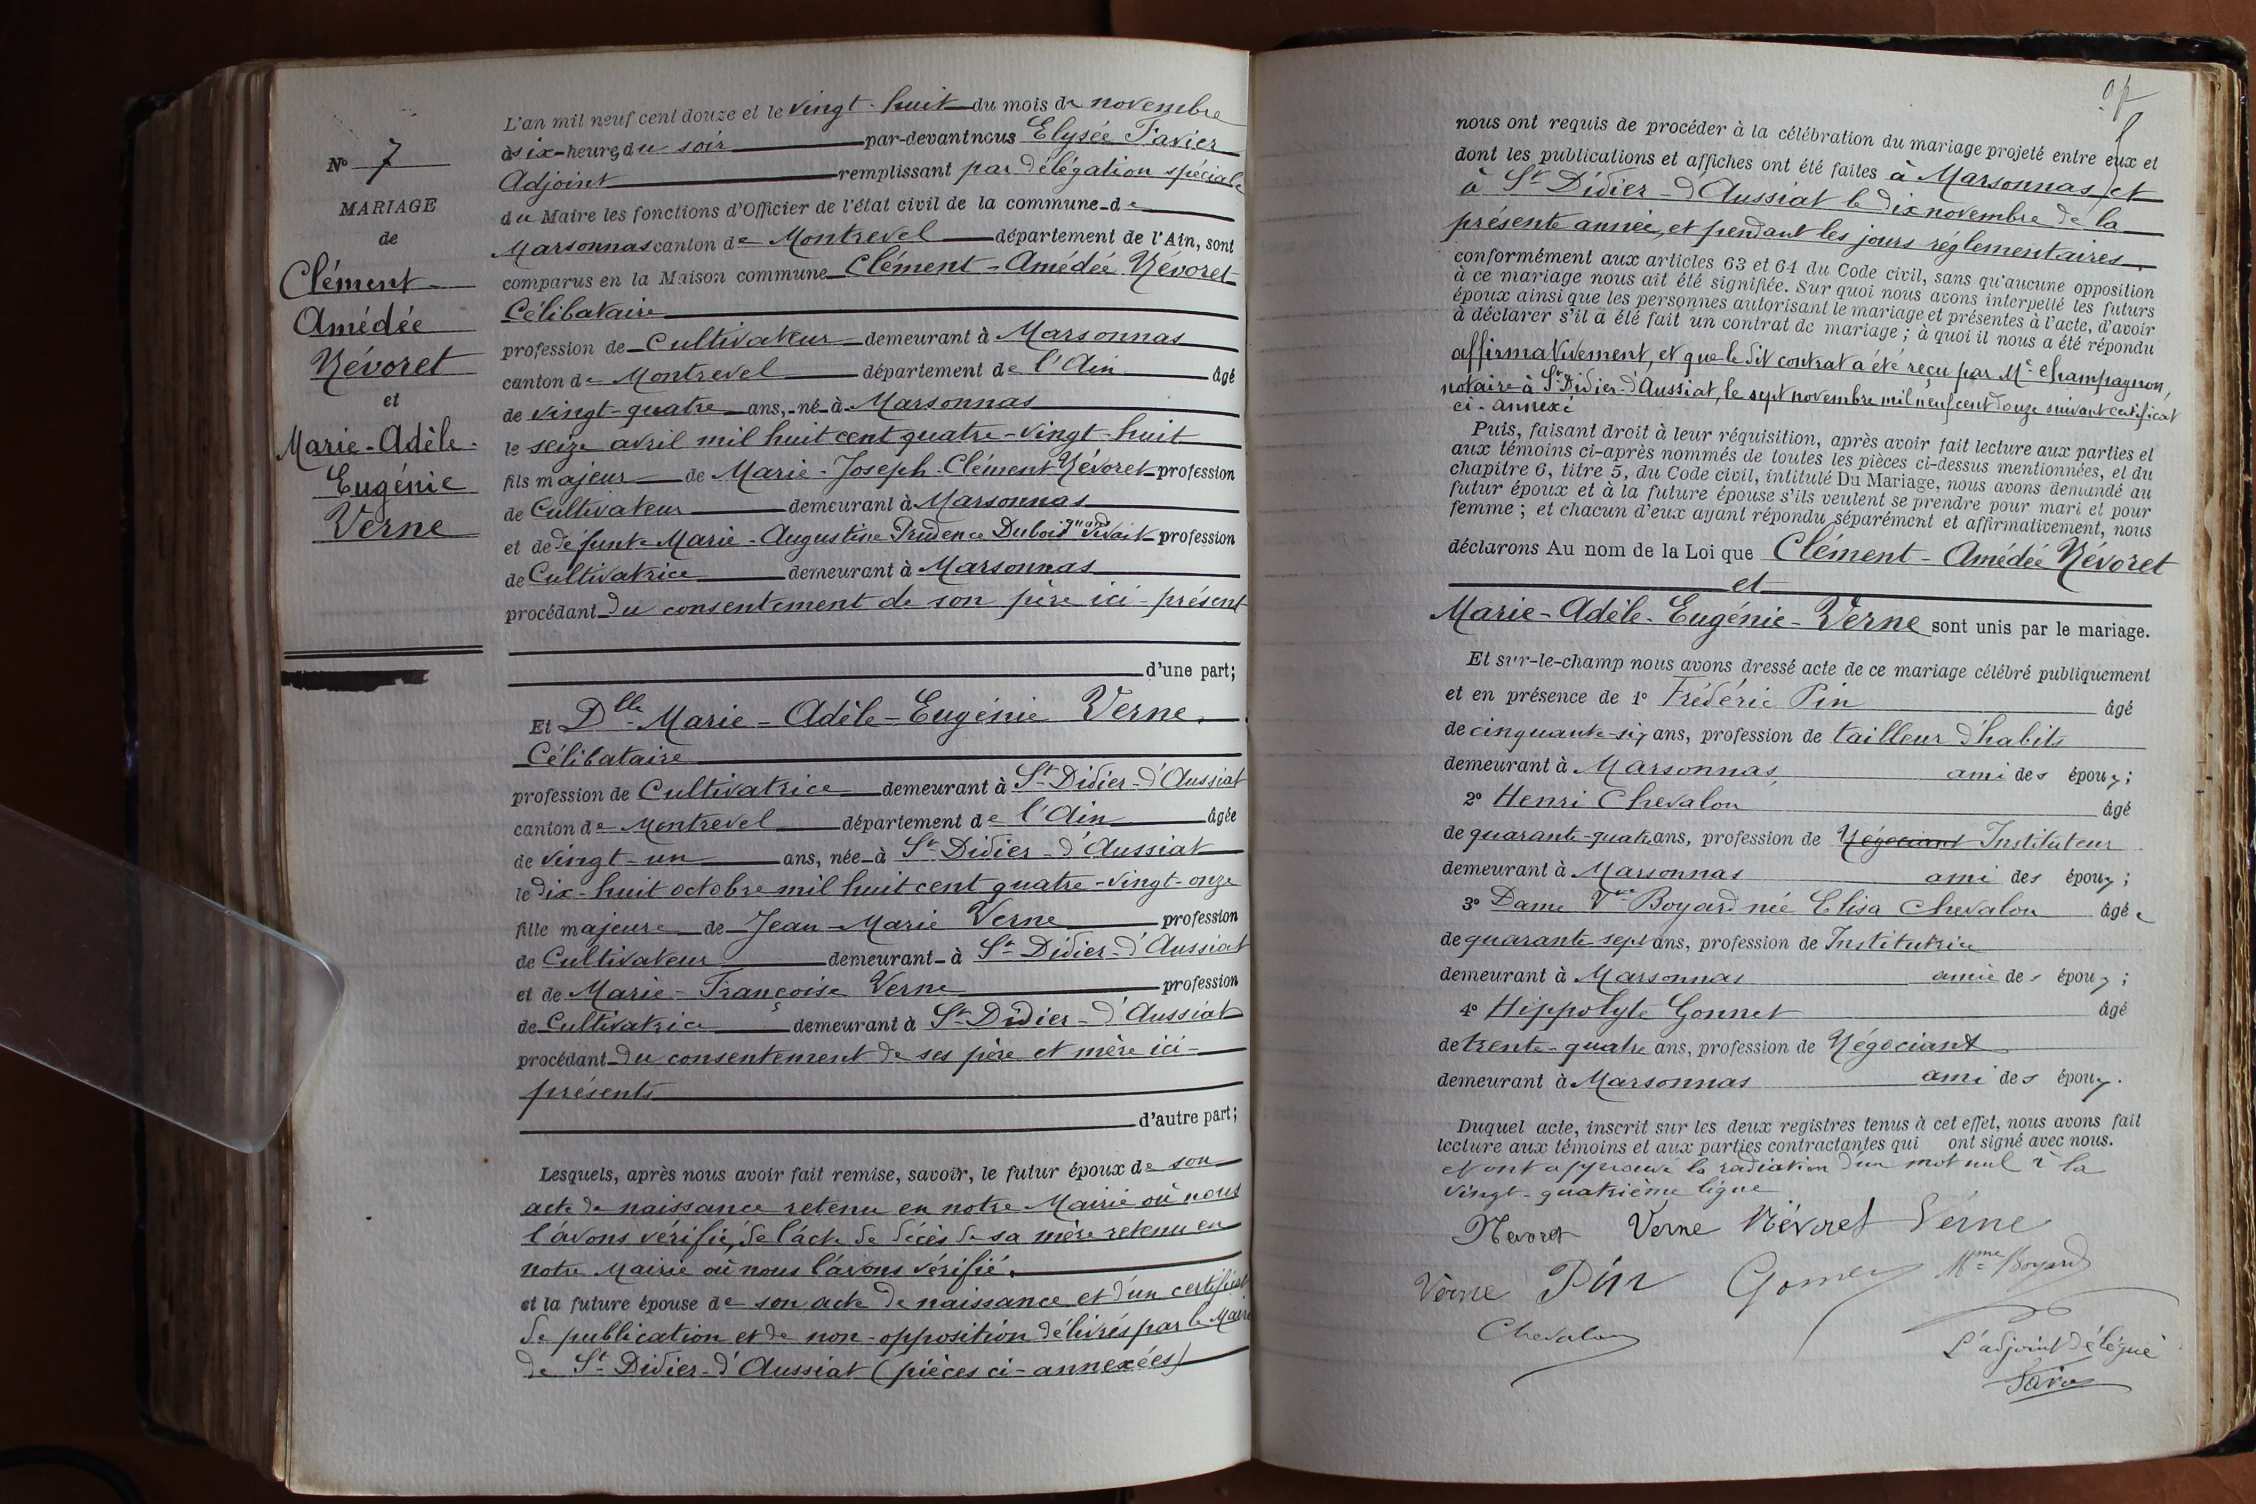 N° 7
MARIAGE
de
Clément
Amédée
Névoret
et
Marie-Adèle-
Eugénie
Verne
L'an mil neuf cent douze et le vingt-huit du mois de novembre
à six heures du soir par-devant nous Elysée Favier
Adjoint remplissant par délégation spéciale
du Maire les fonctions d'Officier de l'état civil de la commune de
Marsonnas canton de Montrevel département de l'Ain, sont
comparus en la Maison commune Clément-Amédée Névoret
Célibataire
profession de Cultivateur demeurant à Marsonnas
canton de Montrevel département de l'Ain âgé
de vingt-quatre ans, né à Marsonnas
le seize avril mil huit cent quatre-vingt-huit
fils majeur de Marie-Joseph-Clément Névoret profession
de Cultivateur demeurant à Marsonnas
et de défunte Marie-Augustine Prudence Dubois, vivait profession
de Cultivatrice demeurant à Marsonnas
procédant du consentement de son père ici-présent
d'une part;
Et Dlle Marie-Adèle-Eugénie Verne,
Célibataire
profession de Cultivatrice demeurant à St Didier-d'Aussiat
canton de Montrevel département de l'Ain âgée
de vingt-un ans, née à St Didier-d'Aussiat
le dix-huit octobre mil huit cent quatre-vingt-onze
fille majeure de Jean-Marie Verne profession
de Cultivateur demeurant à St Didier-d'Aussiat
et de Marie-Françoise Verne profession
de Cultivatrice demeurant à St Didier-d'Aussiat
procédant du consentement de ses père et mère ici-
présents
d'autre part;
Lesquels, après nous avoir fait remise, savoir, le futur époux de son
acte de naissance retenu en notre Mairie où nous
l'avons vérifié, de l'acte de décès de sa mère retenu en
notre Mairie où nous l'avons vérifié.
et la future épouse de son acte de naissance et d'un certificat
de publication et de non-opposition délivrés par le Maire
de St Didier-d'Aussiat (pièces ci-annexées)
nous ont requis de procéder à la célébration du mariage projeté entre eux et
dont les publications et affiches ont été faites à Marsonnas et
à St Didier-d'Aussiat le dix novembre de la
présente année, et pendant les jours réglementaires
conformément aux articles 63 et 64 du Code civil, sans qu'aucune opposition
à ce mariage nous ait été signifiée. Sur quoi nous avons interpellé les futurs
époux ainsi que les personnes autorisant le mariage et présentes à l'acte, d'avoir
à déclarer s'il a été fait un contrat de mariage; à quoi il nous a été répondu
affirmativement, et que le dit contrat a été reçu par Me Champagnon,
notaire à St Didier-d'Aussiat, le sept novembre mil neuf cent douze suivant certificat
ci-annexé
Puis, faisant droit à leur réquisition, après avoir fait lecture aux parties et
aux témoins ci-après nommés de toutes les pièces ci-dessus mentionnées, et du
chapitre 6, titre 5, du Code civil, intitulé Du Mariage, nous avons demandé au
futur époux et à la future épouse s'ils veulent se prendre pour mari et pour
femme; et chacun d'eux ayant répondu séparément et affirmativement, nous
déclarons Au nom de la Loi que Clément-Amédée Névoret
et
Marie-Adèle-Eugénie-Verne sont unis par le mariage.
Et sur-le-champ nous avons dressé acte de ce mariage célébré publiquement
et en présence de 1° Frédéric Pin âgé
de cinquante-six ans, profession de tailleur d'habits
demeurant à Marsonnas ami des époux;
2° Henri Chevalon âgé
de quarante-quatre ans, profession de Négociant Instituteur
demeurant à Marsonnas ami des époux;
3° Dame Vve Boyard née Elisa Chevalon âgée
de quarante sept ans, profession de Institutrice
demeurant à Marsonnas amie des époux;
4° Hippolyte Gonnet âgé
de trente-quatre ans, profession de Négociant
demeurant à Marsonnas ami des époux.
Duquel acte, inscrit sur les deux registres tenus à cet effet, nous avons fait
lecture aux témoins et aux parties contractantes qui ont signé avec nous.
et ont approuvé la radiation d'un mot nul à la
vingt-quatrième ligne
Nevoret Verne Névoret Verne
Verne Pin Gonnet Mme Boyard
Chevalon
L'adjoint délégué
Favier